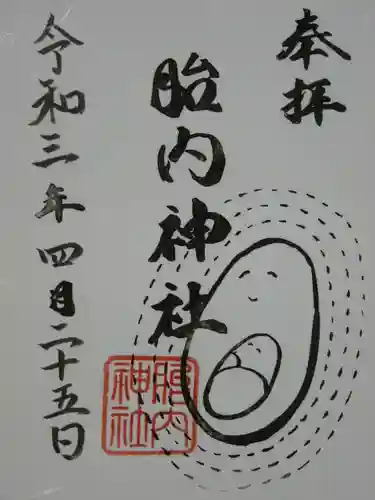 奉拝
胎内神社
令和三年四月二十五日
胎内神社